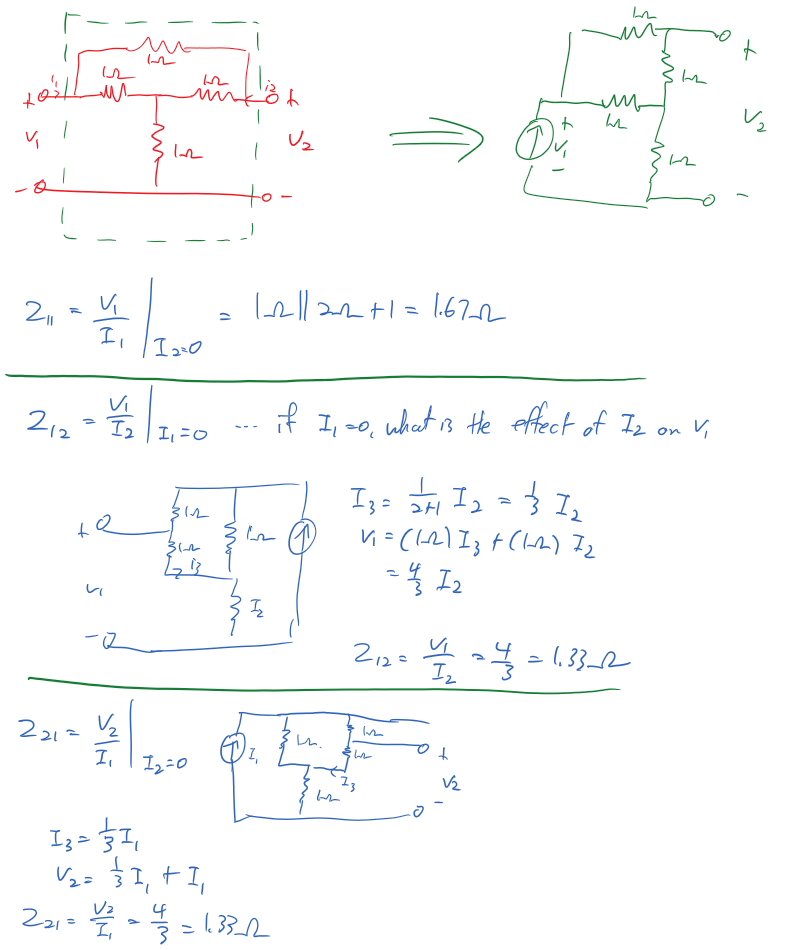 1Ω
1Ω
1Ω
i1
i2
+
+
V1
V2
1Ω
-
-
1Ω
+
1Ω
V2
1Ω
+
V1
-
1Ω
-
Z11 = V1/I1 | I2=0 = 1Ω || 2Ω + 1 = 1.67Ω
Z12 = V1/I2 | I1=0 ... if I1=0, what is the effect of I2 on V1
1Ω
+
1Ω
1Ω
i3
V1
I2
-
I3 = 1/2+1 I2 = 1/3 I2
V1 = (1Ω) I3 + (1Ω) I2
= 4/3 I2
Z12 = V1/I2 = 4/3 = 1.33Ω
Z21 = V2/I1 | I2=0
I1
1Ω
1Ω
1Ω
+
I3
1Ω
V2
-
I3 = 1/3 I1
V2 = 1/3 I1 + I1
Z21 = V2/I1 = 4/3 = 1.33Ω